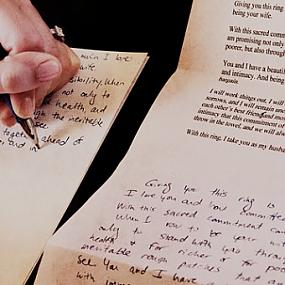 Giving you this ring
being your wife.
With this sacred comm
am promising not only
poorer, but also through
You and I have a beauti
and intimacy. And being
I will work things out, I will
sorrows, and I will remain
each other's best friend and mo
intimacy that this commitment
throw in the towel, and we will alw
With this ring, I take you as my husba
I love
wife
sibility. When
not only to
health, and
the inevitable
see
together ahead of
and in
Giving you this ring is
I love you and how committe
With this sacred commitment com
When I vow to be your wi
only to stand with you throu
health & for richer & for poor
inevitable rough patches that a
see You and I have a
with